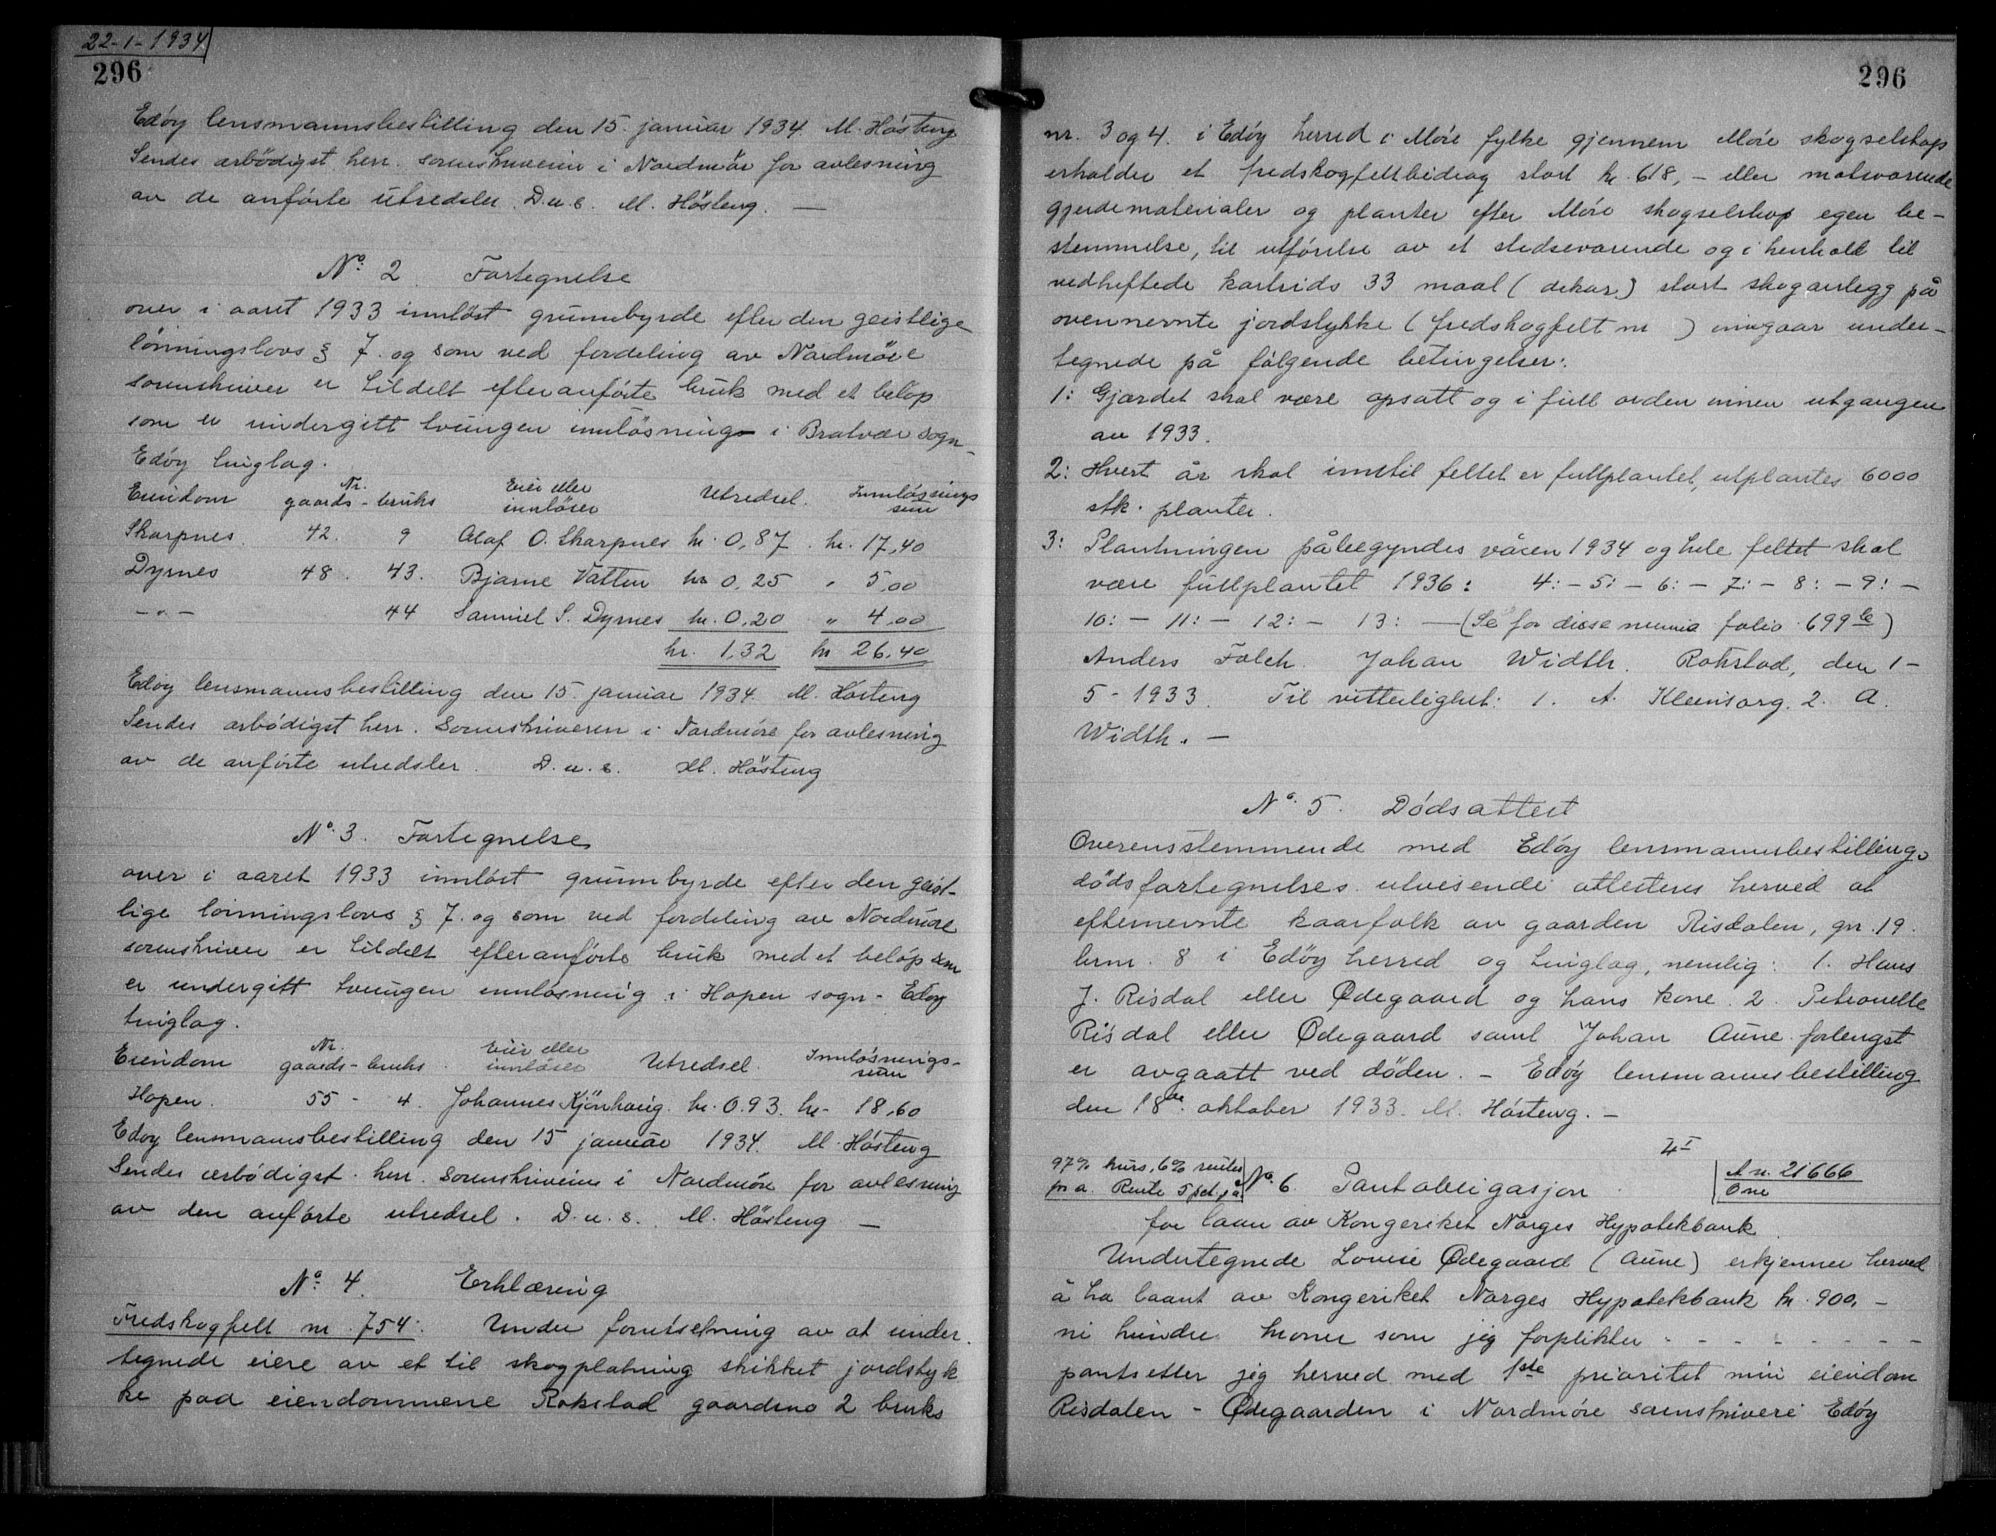 22-1-1934
296
Edöy lensmannsbestilling den 15. januar 1934. M. Hösteng
Sendes ærbödigst herr. sorenskriveren i Nordmör for avlesning
av de anförte utredsler. D.u.s. M. Hösteng. —
No. 2 Fortegnelse
over i aaret 1933 innlöst grunnbyrde efter den geistlige
lönningslovs § 7. og som ved fordeling av Nordmöre
sorenskriver er tildelt efteranförte bruk med et belöp
som er undergitt tvungen innlösning i Bratvær sogn-
Edöy tinglag.
Eiendom Nr. gaards- bruks Eier eller innlöser Utredsel. Innlösnings sum
Skarpnes. 42. 9 Olaf O. Skarpnes kr. 0,87. kr. 17,40
Dyrnes 48. 43. Bjarne Vatten kr 0,25 " 5,00
-"- 44 Samuel S. Dyrnes kr. 0,20 " 4,00
kr. 1,32 kr 26,40
Edöy lensmannsbestilling den 15. januar 1934. M. Hösteng
Sendes ærbödigst herr. Sorenskriveren i Nordmöre for avlesning
av de anförte utredsler. D.u.s. M. Hösteng
No. 3. Fortegnelse
over i aaret 1933 innlöst grunnbyrde efter den geist-
lige lönningslovs § 7. og som ved fordeling av Nordmöre
sorenskriver er tildelt efteranförte bruk med et belöp som
er undergitt tvungen innlösning i Hopen sogn - Edöy
tinglag.
Eiendom Nr. gaards- bruks. Eier eller innlöser Utredsel. Innlösnings- sum
Hopen. 55 - 4. Johannes Kjönhaug. kr. 0.93. kr- 18,60
Edöy lensmannsbestilling den 15 januar 1934. M. Hösteng
Sendes ærbödigst. herr. sorenskriveren i Nordmöre for avlesning
av den anförte utredsel. D.u.s. M. Hösteng —
No. 4. Erklæring
Fredskogfelt nr. 754. Under forutsetning av at under-
tegnede eiere av et til skogplatning skikket jordstyk
ke paa eiendommene Rokstad gaardsno 2 bruks
296
nr. 3 og 4. i Edöy herred i Möre fylke gjennem Möre skogselskap
erholder et fredskogfeltbidrag stort kr. 618,- eller motsvarende
gjerdematerialer og planter efter Möre skogselskap egen be-
stemmelse, til utförelse av et stedsevarende og i henhold til
vedheftede kartrids 33 maal (dekar) stort skoganlegg på
ovennevnte jordstykke (fredskogfelt nr ) inngaar under-
tegnede på fölgende betingelser:
1: Gjærdet skal være opsatt og i full orden innen utgangen
av 1933.
2: Hvert år skal inntil feltet er fullplantet, utplantes 6000
stk. planter.
3: Plantningen påbegyndes våren 1934 og hele feltet skal
være fullplantet 1936: 4: - 5: - 6: - 7: - 8: - 9: -
10: - 11: - 12: - 13: — (Se for disse numra folio 699 b)
Anders Falch. Johan Width. Rokstad, den 1-
5 - 1933. Til vitterlighet: 1. A. Kleivsorg. 2. A.
Width. —
No. 5. Dödsattest
Overensstemmende med Edöy lensmannsbestillings
dödsfortegnelses utvisende attesteres herved at
efternevnte kaarfolk av gaarden Risdalen, gnr. 19.
brnr. 8 i Edöy herred og tinglag, nemlig: 1. Hans
J. Risdal eller Ødegaard og hans kone. 2. Petronelle
Risdal eller Ødegaard samt Johan Aune forlengst
er avgaatt ved döden. - Edöy lensmannsbestilling
den 18de. oktober 1933. M. Hösteng. —
97% kurs. 6% renter
pr a. Rente 5 pct. på
No. 6 Pantobligasjon
A n. 21666
for laan av Kongeriket Norges Hypotekbank
Undertegnede Lovise Ødegaard (Aune) erkjenner herved
å ha laant av Kongeriket Norges Hypotekbank kr. 900,-
ni hundre kroner som jeg forplikter - - - - - - - -
pantsetter jeg herved med 1ste prioritet min eiendom
Risdalen - Ødegaarden i Nordmöre sorenskriveri Edöy